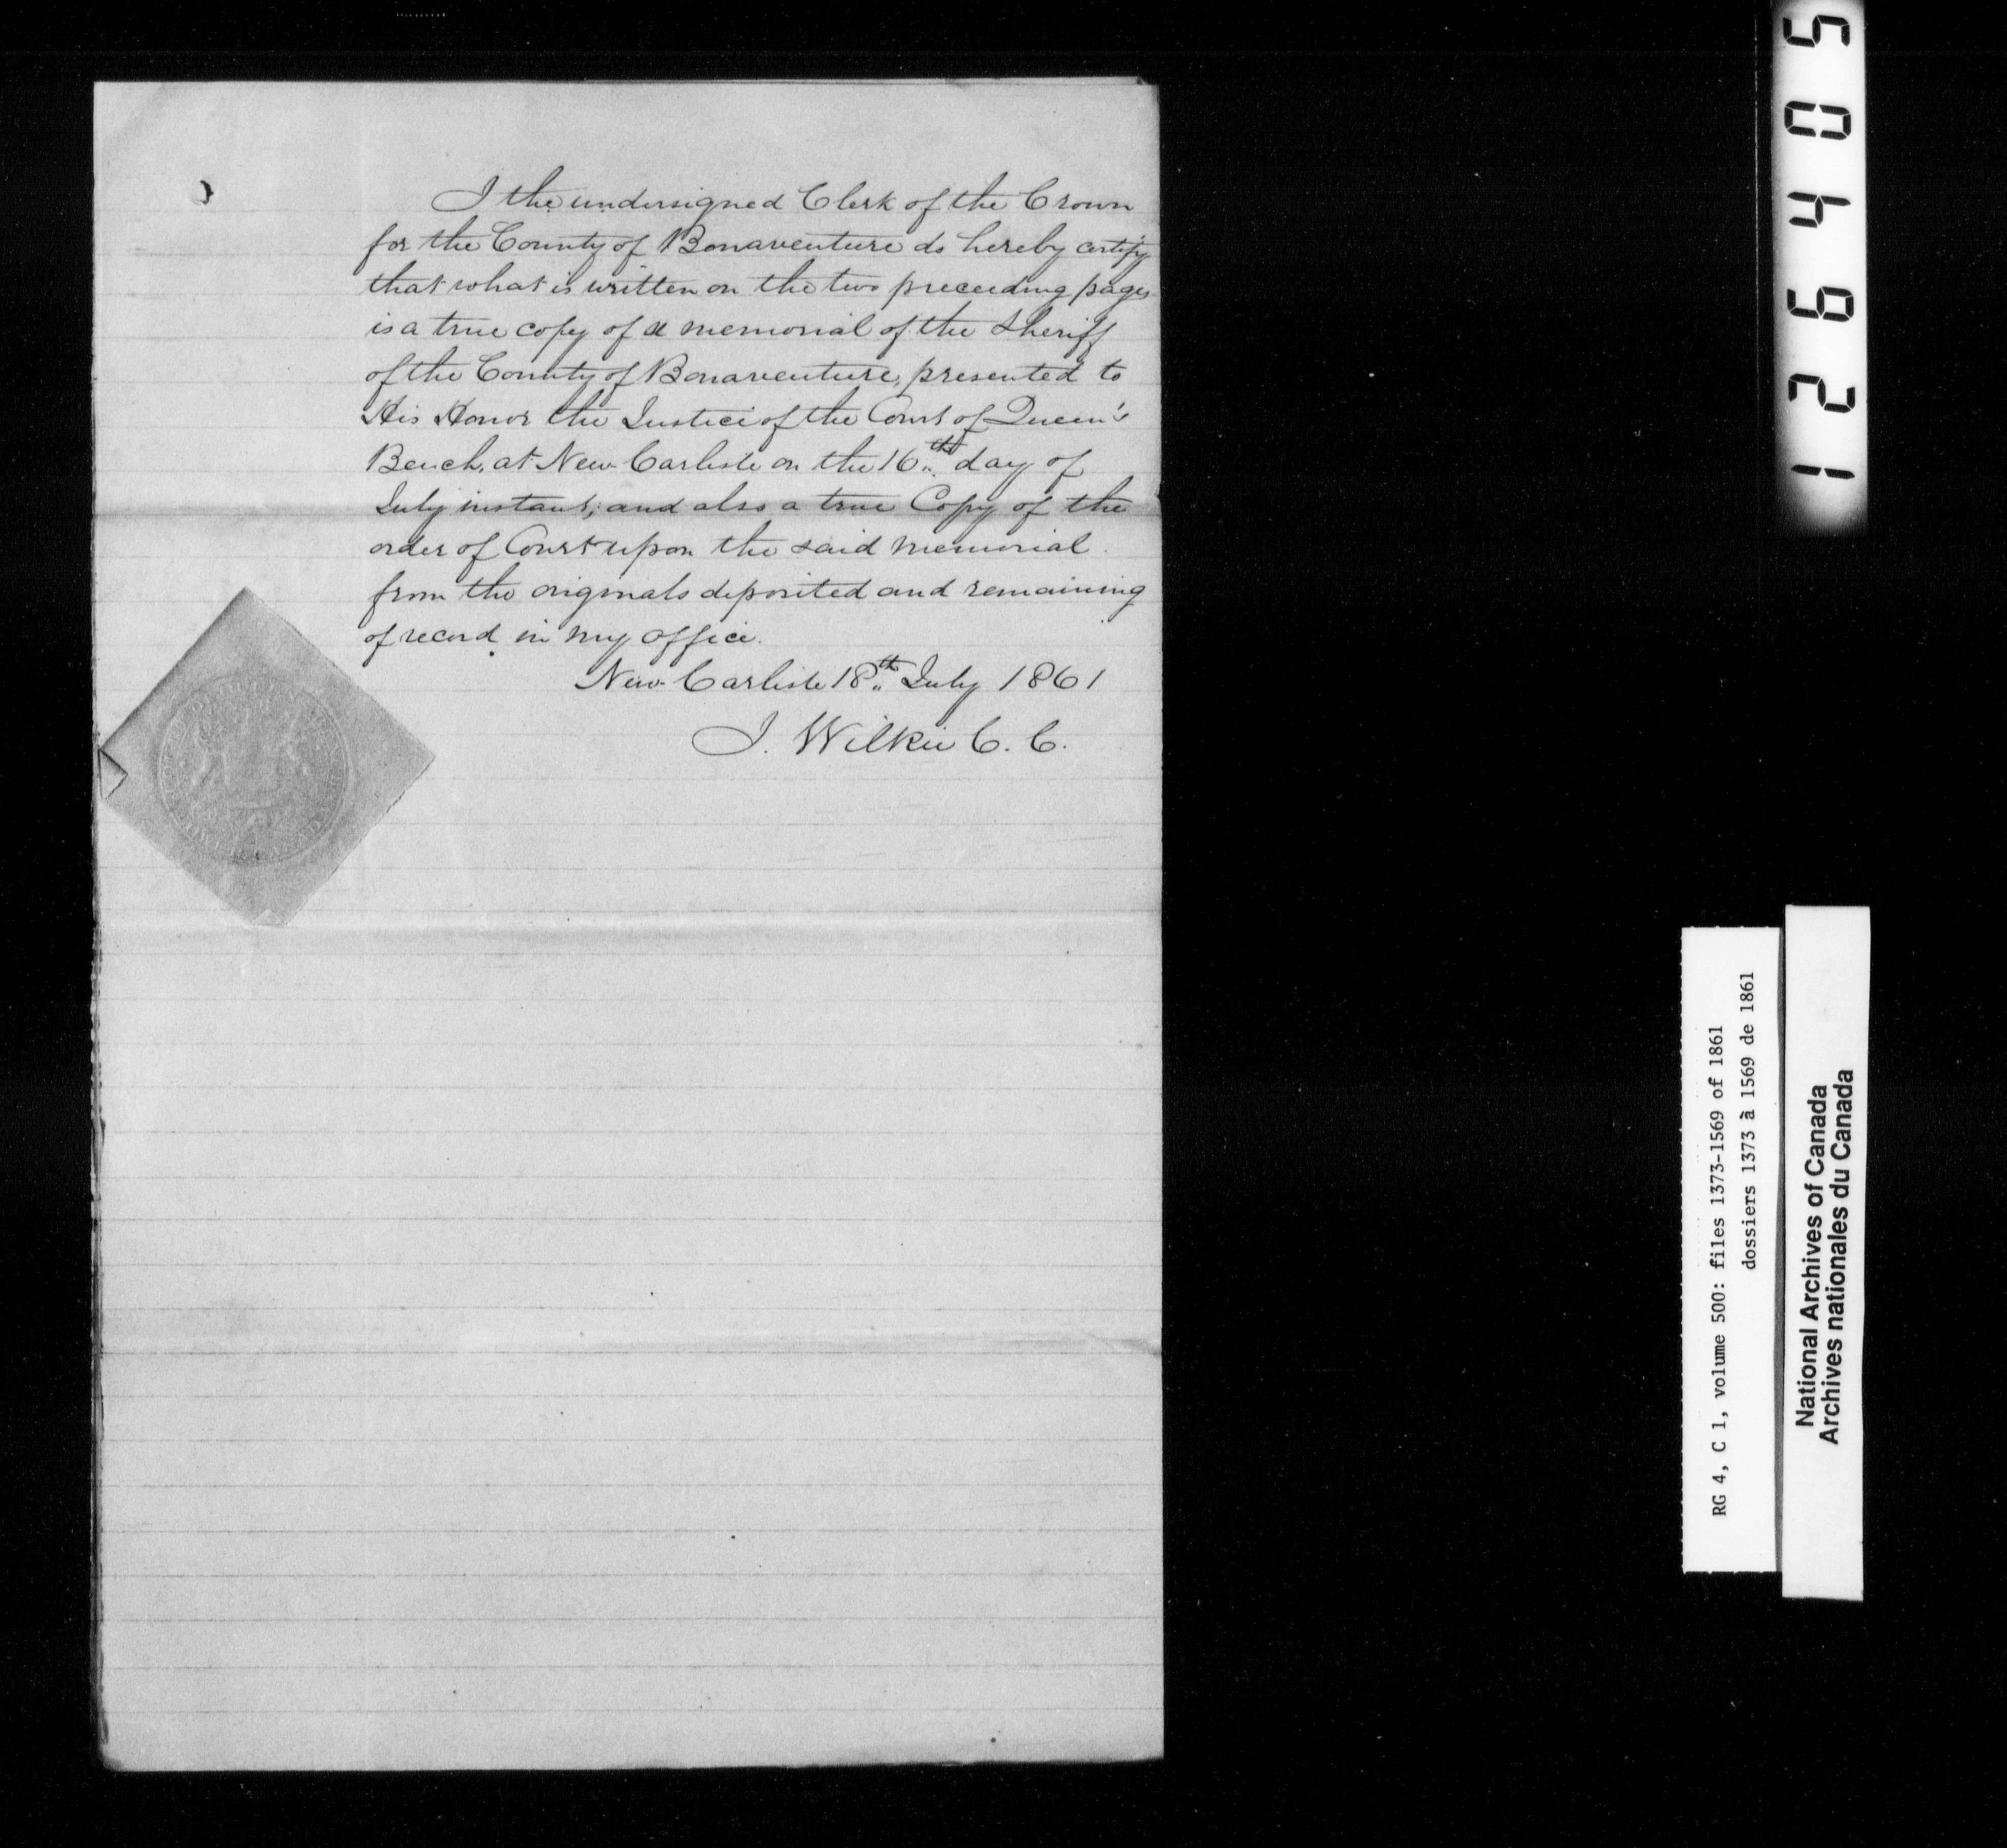 I the undersigned Clerk of the Crown
for the County of Bonaventure do hereby certify
that what is written on the two preceeding pages
is a true copy of a memorial of the Sheriff
of the County of Bonaventure, presented to
His Honor the Justice of the Court of Queen's
Bench, at New Carlisle on the 16th day of
July instant, and also a true Copy of the
order of Court upon the said memorial
from the originals deposited and remaining
of record in my office.
New Carlisle 18th July 1861
J. Wilkie C. C.
126405
RG 4, C 1, volume 500: files 1373-1569 of 1861
dossiers 1373 à 1569 de 1861
National Archives of Canada
Archives nationales du Canada